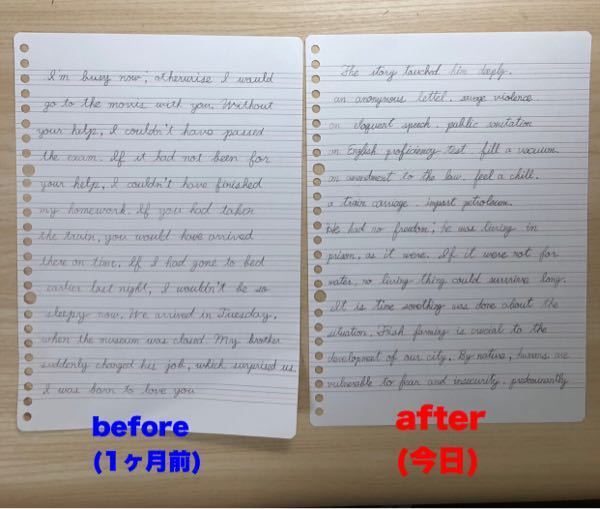 I'm busy now; otherwise I would
go to the movis with you. Without
your help, I couldn't have passed
the exam. If it had not been for
your help, I couldn't have finished
my homework. If you had taken
the train, you would have arrived
there on time. If I had gone to bed
earlier last night, I wouldn't be so
sleepy now. We arrived in Tuesday,
when the museum was closed. My brother
suddenly changed his job, which surprised us.
I was born to love you
before
(1ヶ月前)
The story touched him deeply.
an anonymous letter. savage violence.
an eloquent speech. public sanitation
an English proficiency test fill a vacuum.
an amendment to the law. feel a chill.
a train carriage. import petroleum.
We had no freedom; he was living in
prison, as it were. If it were not for
water, no living thing could survive long.
It is time something was done about the
situation. Fish farming is crucial to the
development of our city. By nature, humans are
vulnerable to fear and insecurity. predominantly
after
(今日)